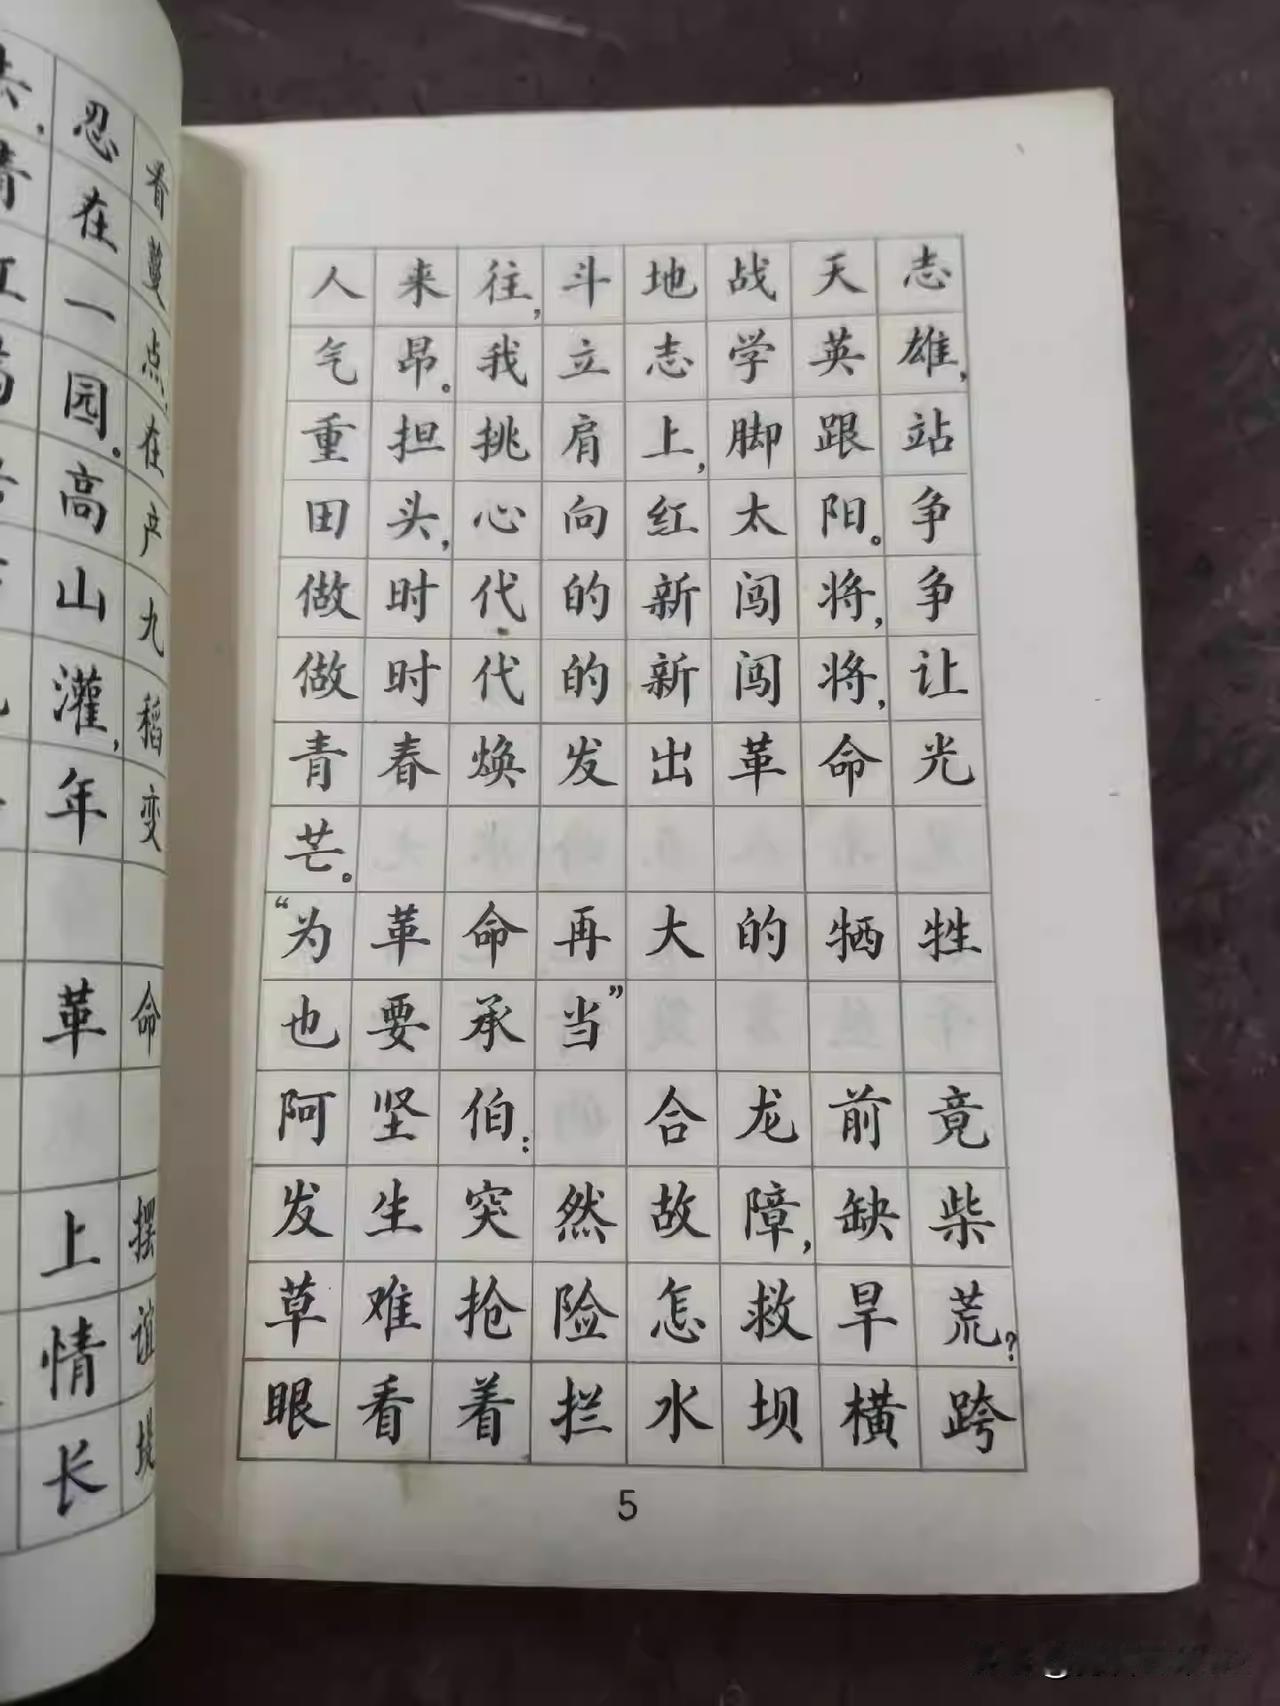 人来往，斗地战天志
气昂。我立志学英雄，
重担挑肩上，脚跟站
田头，心向红太阳。争
做时代的新闯将，争
做时代的新闯将，让
青春焕发出革命光
芒。
“为革命再大的牺牲
也要承当”
阿坚伯： 合龙前竟
发生突然故障，缺柴
草难抢险怎救旱荒？
眼看着拦水坝横跨
5
忍看
在蔓
一点
园。在
高产
山九
灌，稻
年变
革命
上摆
情谊
长堤